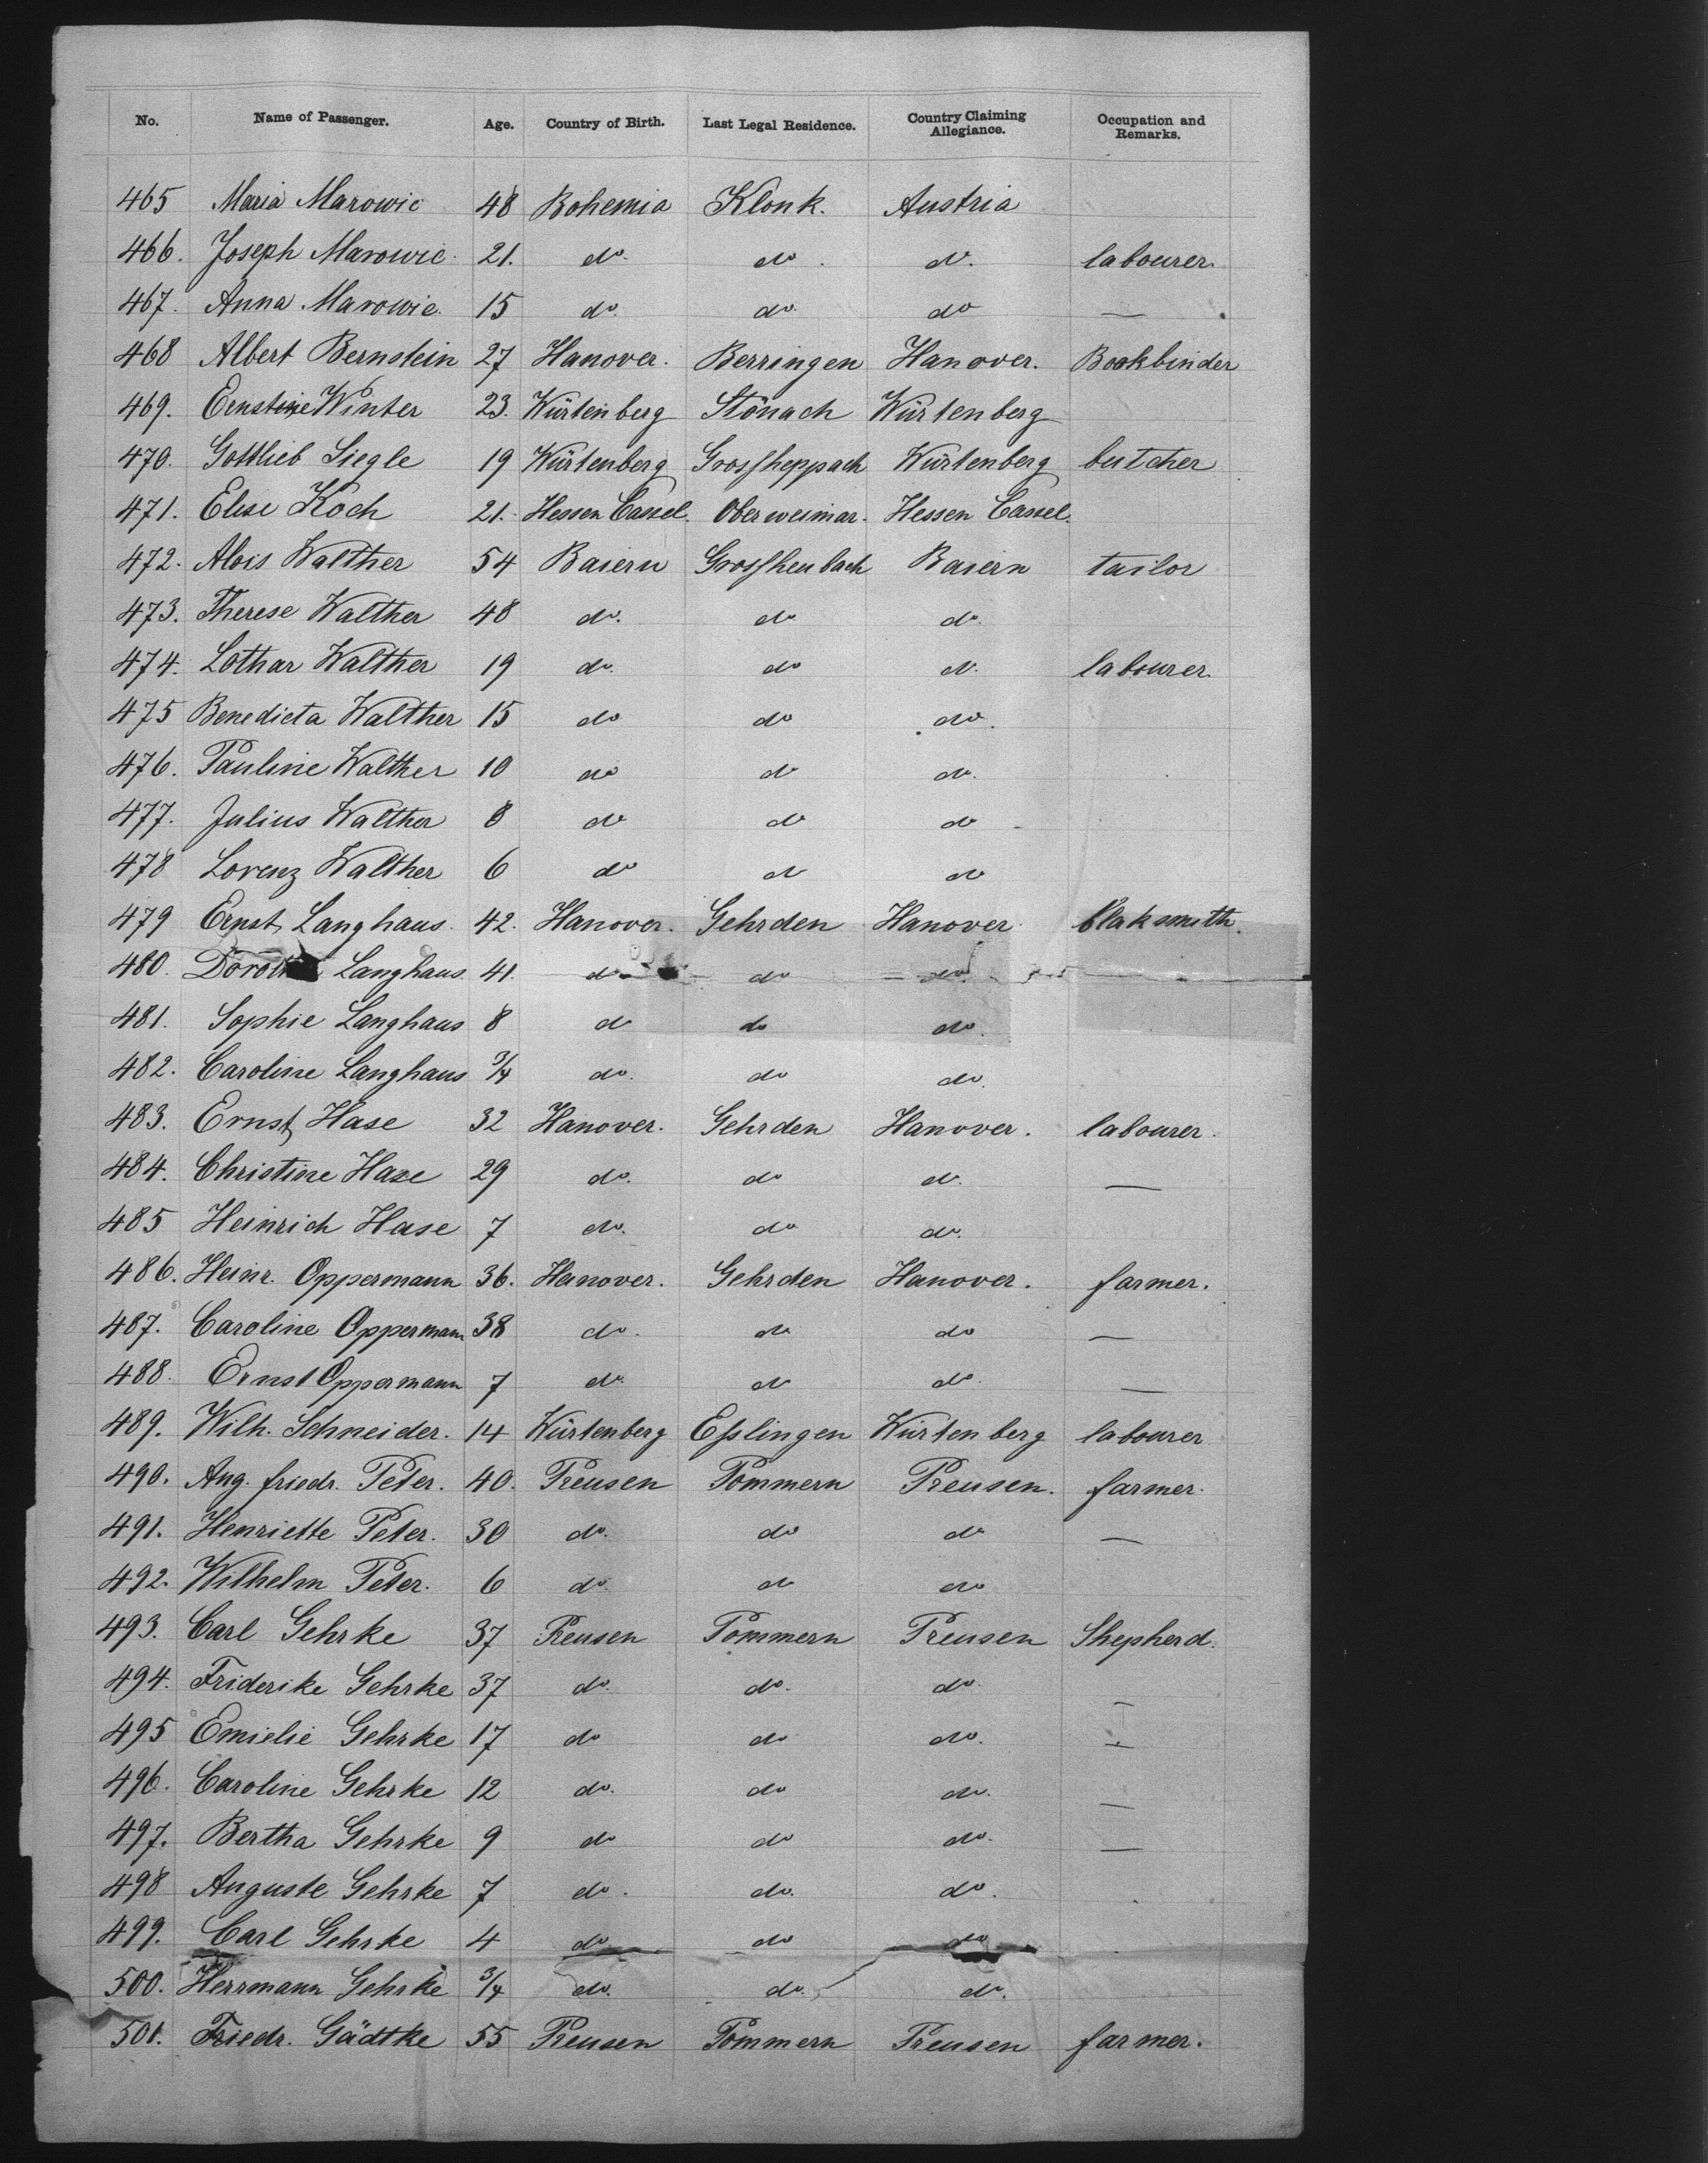 No. Name of Passenger. Age. Country of Birth. Last Legal Residence. Country Claiming Allegiance. Occupation and Remarks.
465 Maria Marowic 48 Bohemia Klonk. Austria
466. Joseph Marowic 21. do. do. do. labourer.
467. Anna Marowic. 15 do. do. do —
468 Albert Bernstein 27 Hanover. Berringen Hanover. Bookbinder
469. Ernstine Winter 23. Würtenberg Stönach Würtenberg
470. Gottlieb Siegle 19 Würtenberg Grossheppach Würtenberg butcher
471. Elise Koch 21. Hessen Cassel. Oberweimar. Hessen Cassel.
472. Alois Walther 54 Baiern Grossheubach Baiern tailor
473. Therese Walther 48 do. do do.
474. Lothar Walther 19 do. do do. labourer.
475 Benedicta Walther 15 do do do.
476. Pauline Walther 10 do do do.
477. Julius Walther 8 do do do
478 Lorenz Walther 6 do do do
479 Ernst Langhaus. 42. Hanover. Gehrden Hanover. blaksmith.
480. Langhaus. 41. do do do.
481. Sophie Langhaus 8 do do do.
482. Caroline Langhaus 3/4 do. do do.
483. Ernst Hase 32 Hanover. Gehrden Hanover. labourer.
484. Christine Hase 29 do. do do. —
485 Heinrich Hase 7 do. do do.
486. Heinr. Oppermann 36. Hanover. Gehrden Hanover. farmer.
487. Caroline Oppermann 38 do. do do —
488. Ernst Oppermann 7 do. do do. —
489. Wilh. Schneider. 14 Würtenberg Esslingen Würtenberg labourer
490. Aug. friedr. Peter. 40. Preusen Pommern Preusen. farmer.
491. Henriette Peter. 30 do. do do —
492. Wilhelm Peter. 6 do. do do
493. Carl Gehrke 37 Preusen Pommern Preusen Shepherd.
494. Friderike Gehrke 37 do. do. do. —
495 Emielie Gehrke 17 do do do. —
496. Caroline Gehrke 12 do. do do. —
497. Bertha Gehrke 9 do do do. —
498 Auguste Gehrke 7 do. do. do.
499. Carl Gehrke 4 do do do
500. Herrmann Gehrke 3/4 do. do. do.
501. Friedr. Gädtke 55 Preusen Pommern Preusen farmer.